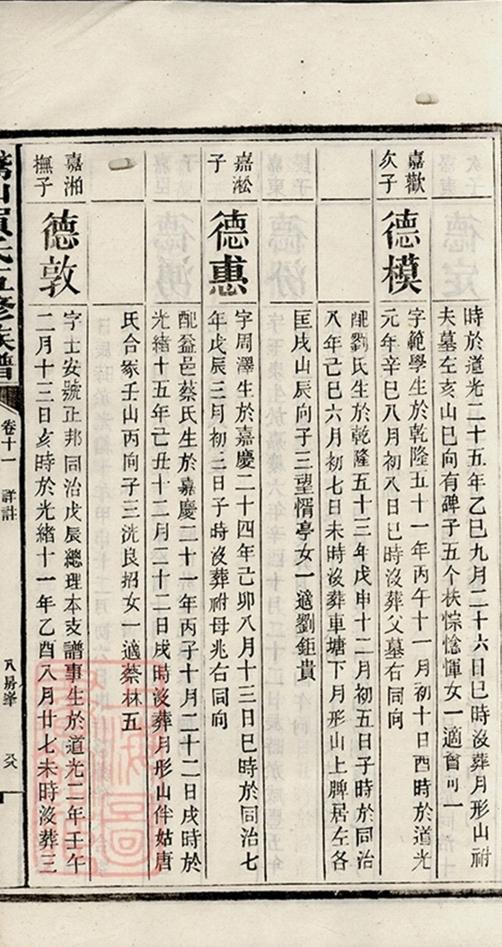 時於道光二十五年乙巳九月二十六日巳時沒葬月形山祔
夫墓左亥山巳向有碑子五个㧊悰惗惲女一適
一
嘉歡
次子
德模
字範學生於乾隆五十一年丙午十一月初十日酉時於道光
元年辛巳八月初八日巳時沒葬父墓右同向
配劉氏生於乾隆五十三年戊申十二月初五日子時於同治
八年己巳六月初七日未時沒葬車塘下月形山上脾居左各
匡戌山辰向子三望㥩亭女一適劉鉅貴
嘉淞
子
德惠
字周澤生於嘉慶二十四年己卯八月十三日巳時於同治七
年戊辰三月初三日子時沒葬祔母兆右同向
配益邑蔡氏生於嘉慶二十一年丙子十月二十二日戌時於
光緒十五年己丑十二月二十二日戌時沒葬月形山伴姑唐
氏合冢壬山丙向子三洗良招女一適蔡林五
嘉湘
撫子
德敦
字士安號正邦同治戊辰總理本支譜事生於道光二年壬午
二月十三日亥時於光緒十一年乙酉八月廿七未時沒葬三
氏五修族譜
卷十一
詳註
八房峯